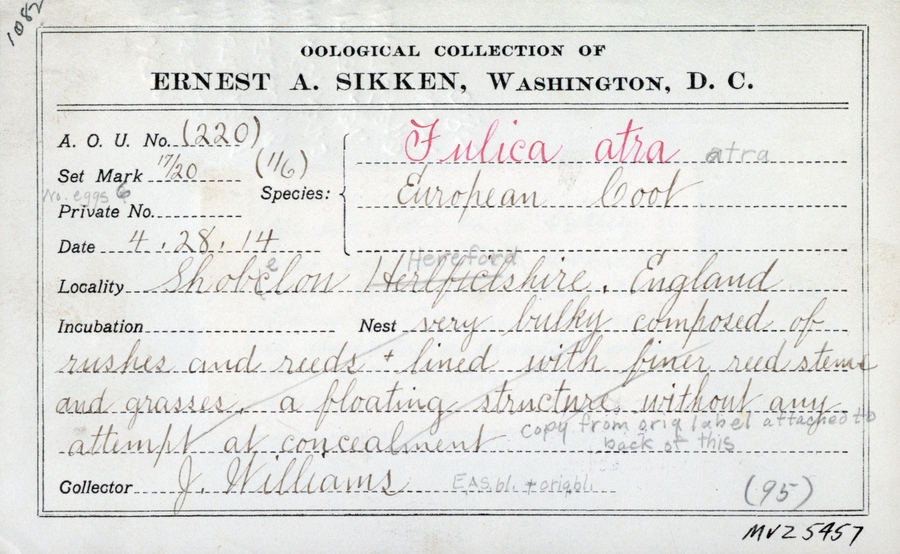 1082
OOLOGICAL COLLECTION OF
ERNEST A. SIKKEN, WASHINGTON, D. C.
A. O. U. No. (220)
Fulica atra atra
Set Mark 17/20 (1/6)
Species:
European Coot
No. eggs 6
Private No.
Date 4.28.14
Hereford
Locality Shobelon Herlficlshire, England
Incubation Nest very bulky composed of
rushes and reeds + lined with finer reed stems
and grasses, a floating structure without any
attempt at concealment
copy from orig label attached to
back of this
Collector J. Williams EAS.bl. + orig.bl. (95)
MVZ 5457